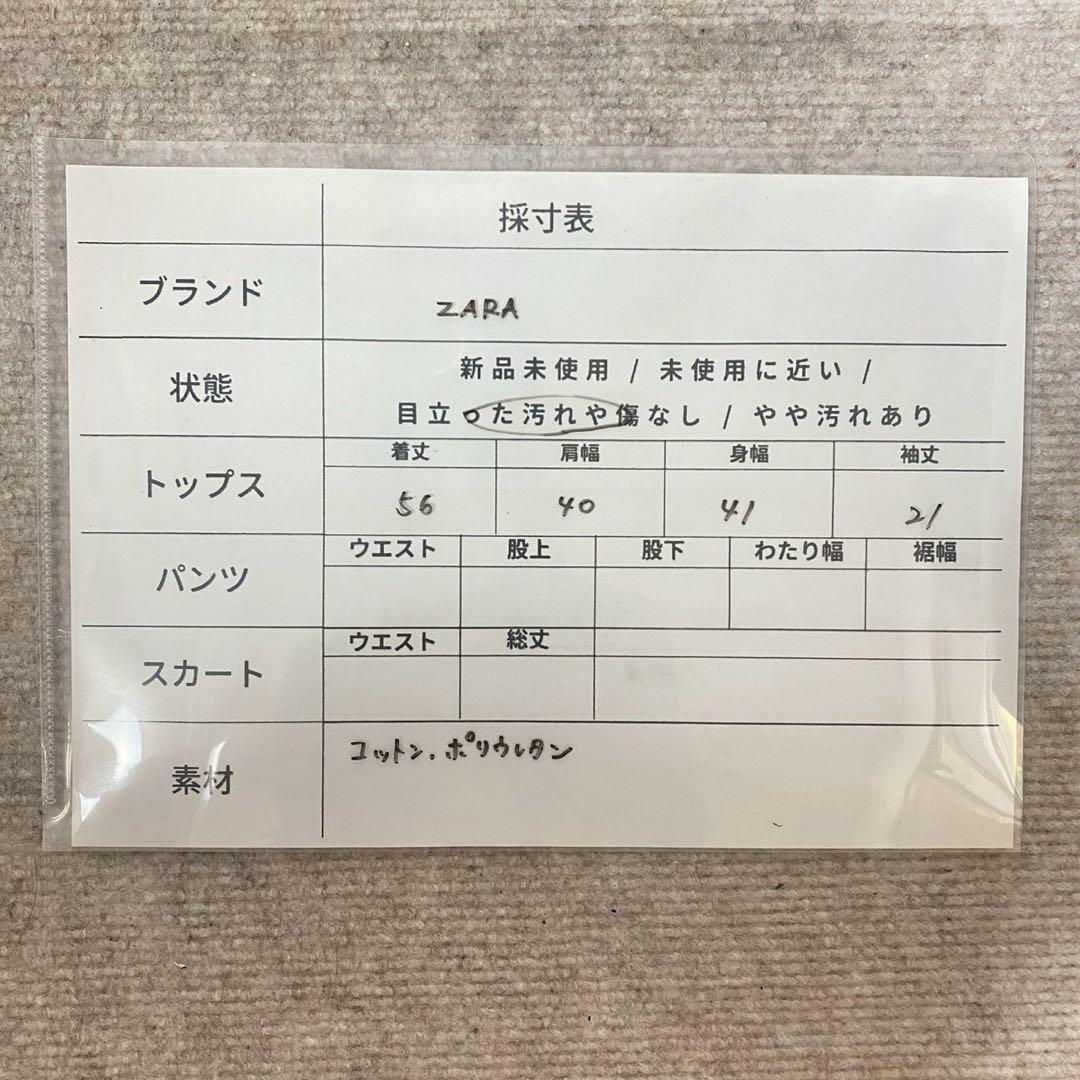 採寸表
ブランド
ZARA
状態
新品未使用 / 未使用に近い /
目立った汚れや傷なし / やや汚れあり
トップス
着丈 肩幅 身幅 袖丈
56 40 41 21
パンツ
ウエスト 股上 股下 わたり幅 裾幅
スカート
ウエスト 総丈
素材
コットン、ポリウレタン